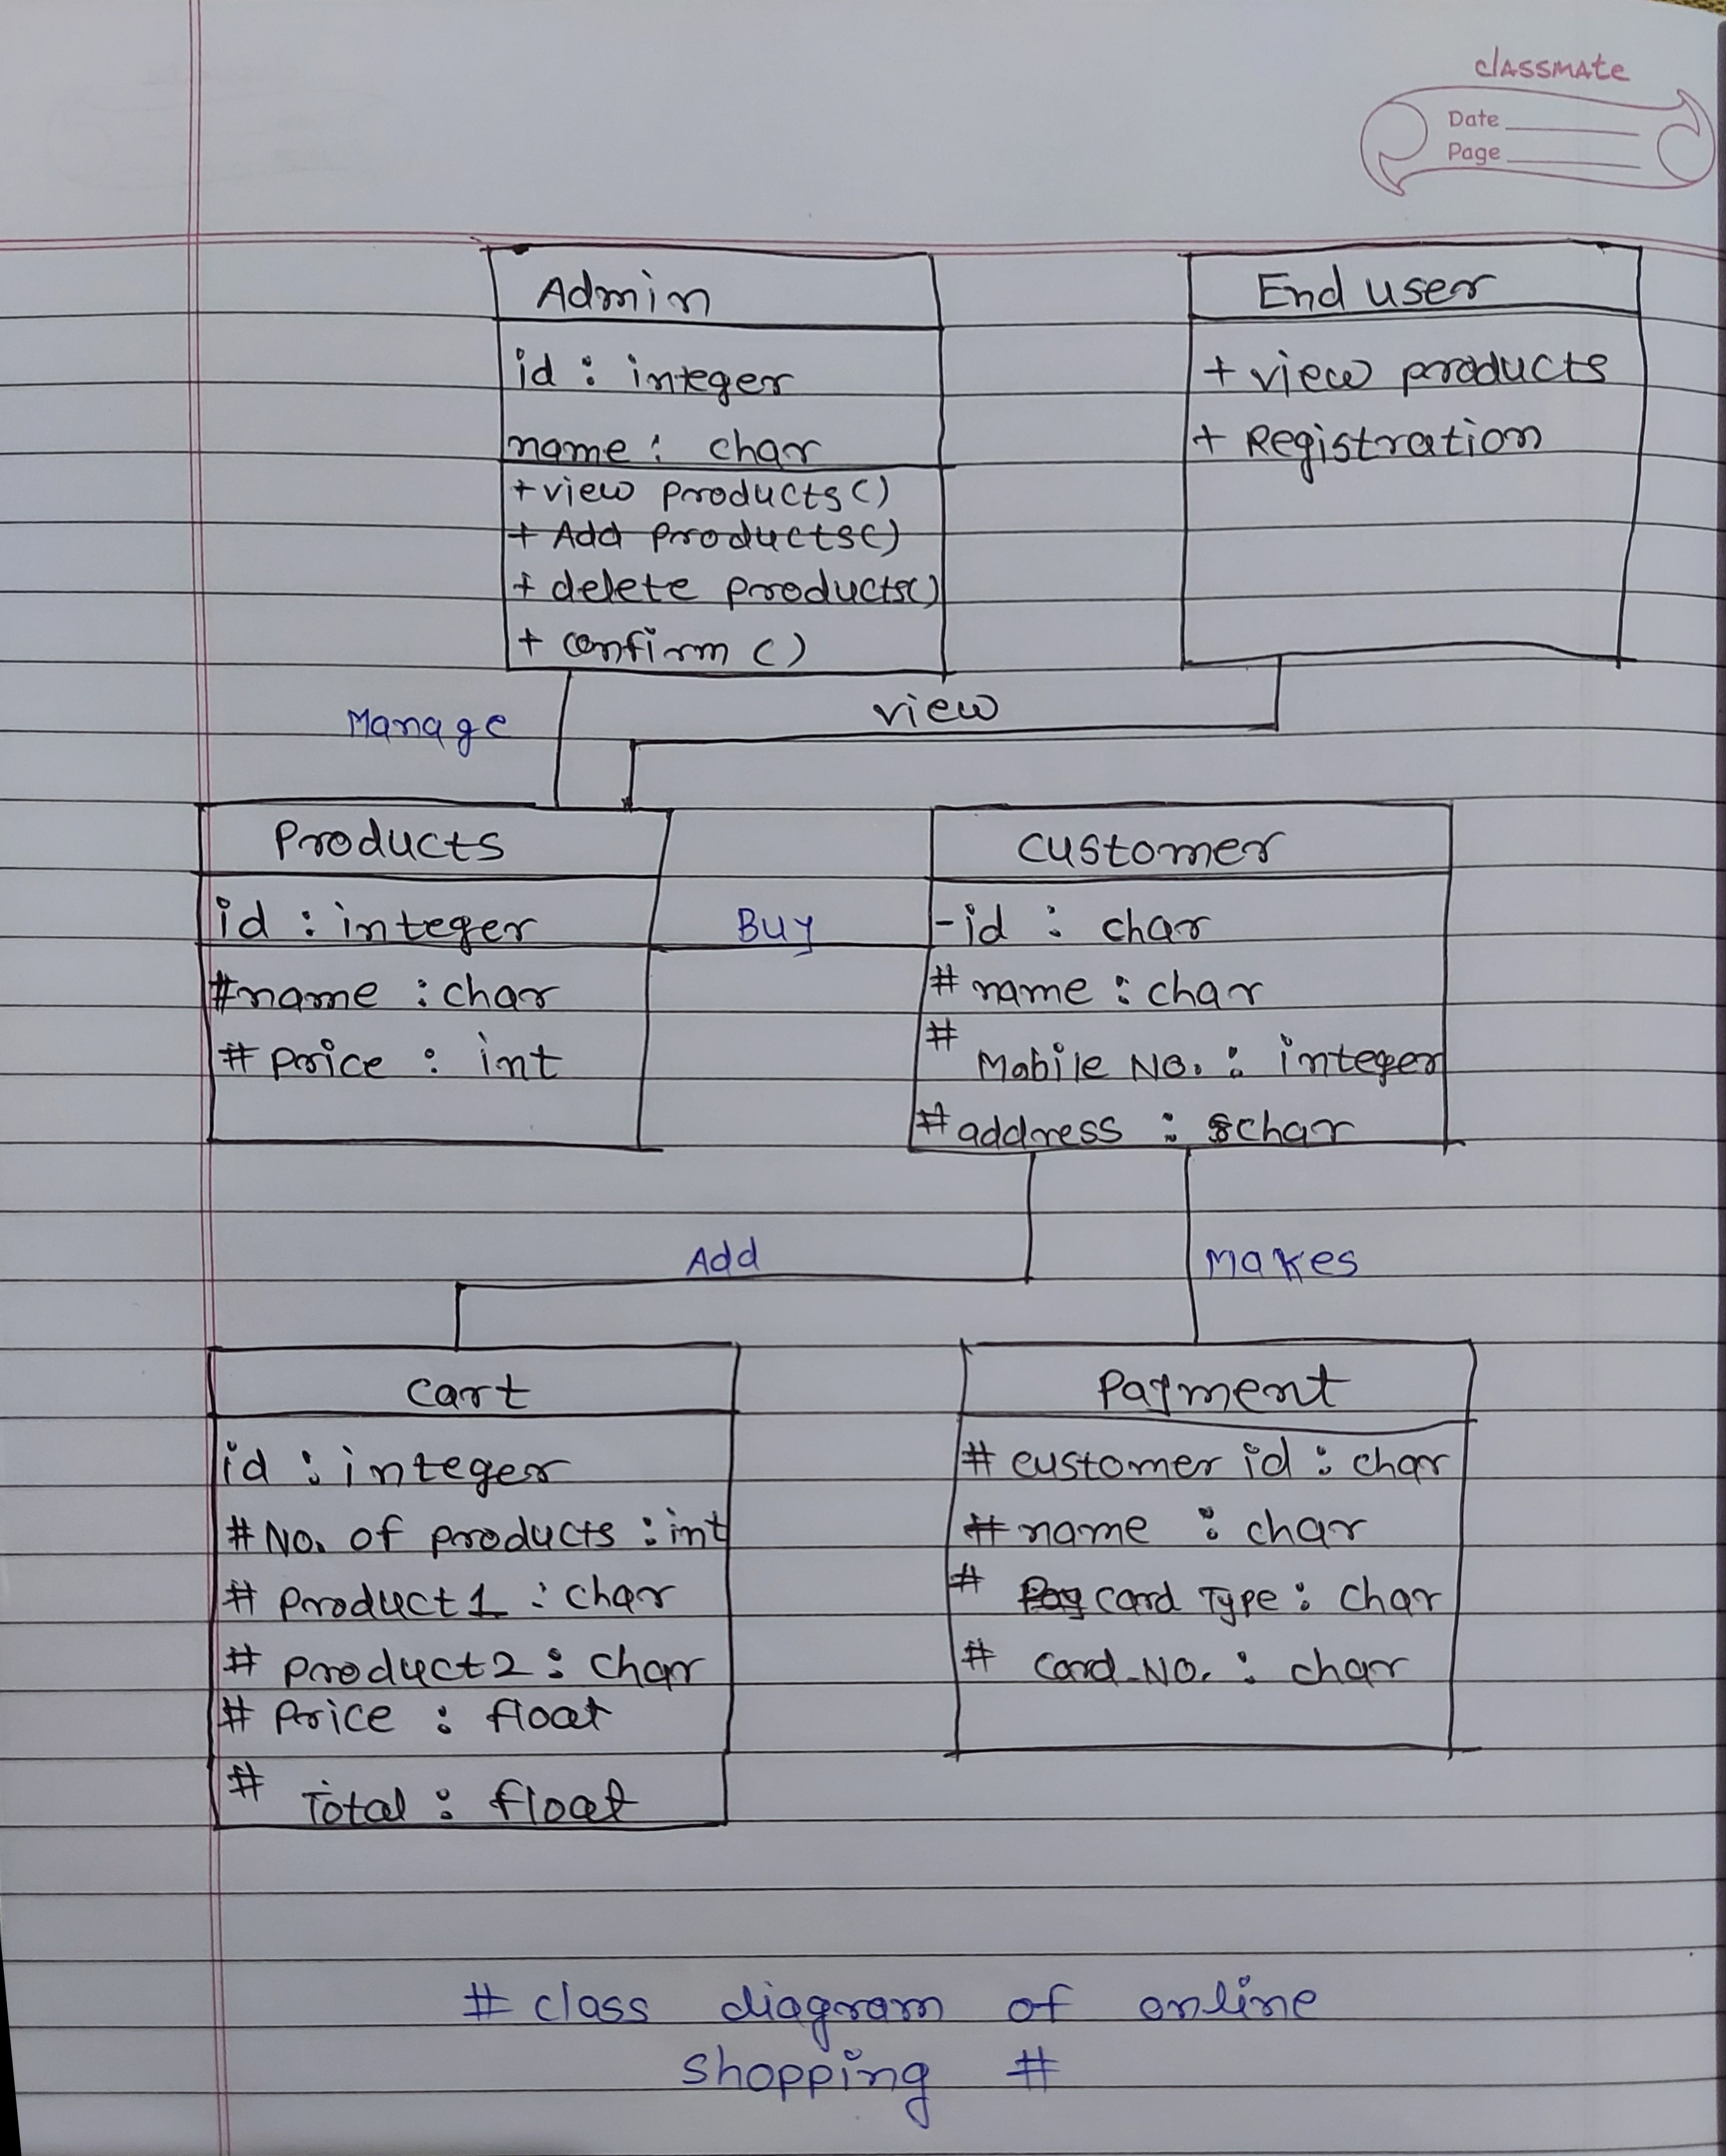 classmate
Date
Page
Admin
id : integer
name : char
+ view products()
+ Add products()
+ delete products()
+ confirm ()
End user
+ view products
+ Registration
Manage
view
Products
id : integer
#name : char
# price : int
Buy
customer
-id : char
# name : char
# Mobile No. : integer
#address : char
Add
Makes
cart
id : integer
#No. of products : int
# product1 : char
# product2 : char
# Price : float
# Total : float
Payment
# customer id : char
# name : char
# Card Type : char
# Card_No. : char
# class diagram of online
shopping #